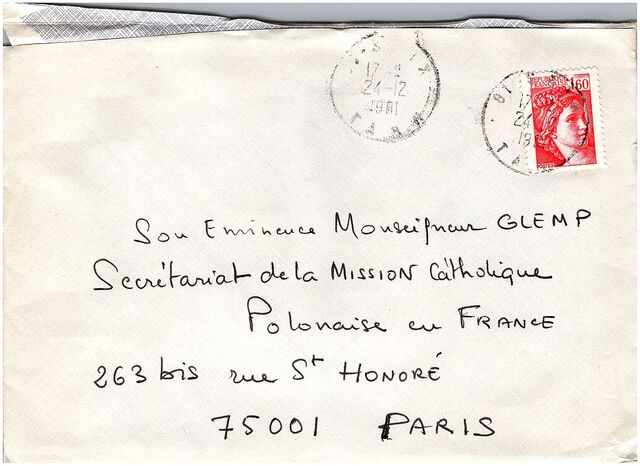 17
24-12
1981
TARN
1,60
17
24
19
Son Eminence Monseigneur GLEMP
Secrétariat de la MISSION Catholique
Polonaise en FRANCE
263 bis rue St HONORÉ
75001 PARIS